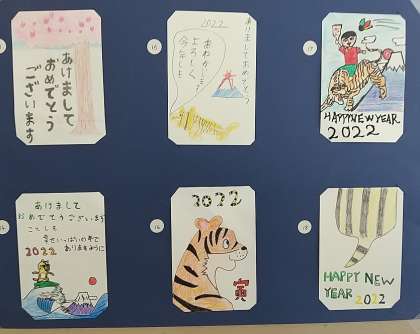 あけまして
おめでとう
ございます
2022
あけましておめでとう
今年も
よろしく
HAPPY NEW YEAR
2022
あけまして
おめでとうございます
ことしも
幸せいっぱいの年で
ありますように
2022
2022
寅
HAPPY NEW
YEAR 2022